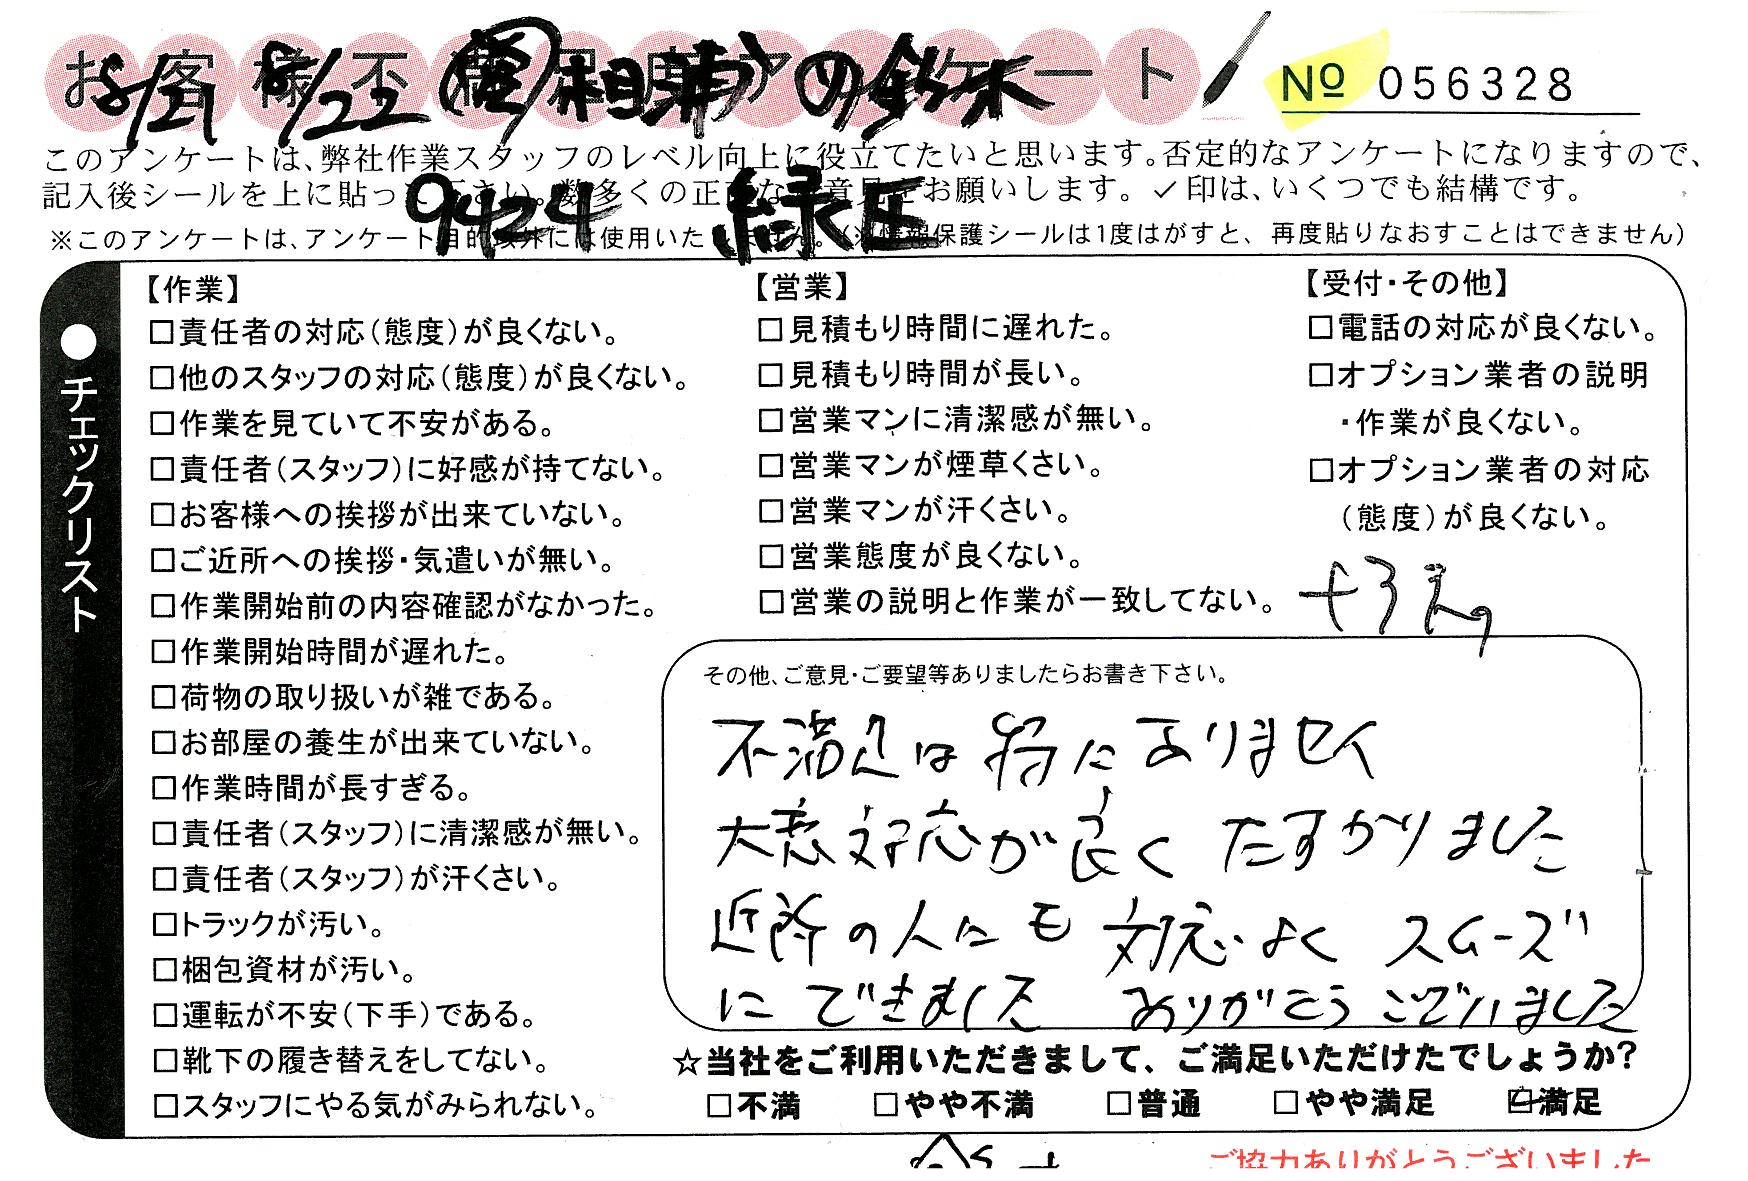 お客様不満足度アンケート
8/21 8/22 相浦 の鈴木
No 056328
このアンケートは、弊社作業スタッフのレベル向上に役立てたいと思います。否定的なアンケートになりますので、
記入後シールを上に貼って下さい。数多くの正直なご意見をお願いします。✓印は、いくつでも結構です。
9424 緑王
※このアンケートは、アンケート目的以外には使用いたしません。(※情報保護シールは1度はがすと、再度貼りなおすことはできません)
●チェックリスト
【作業】
□責任者の対応(態度)が良くない。
□他のスタッフの対応(態度)が良くない。
□作業を見ていて不安がある。
□責任者(スタッフ)に好感が持てない。
□お客様への挨拶が出来ていない。
□ご近所への挨拶・気遣いが無い。
□作業開始前の内容確認がなかった。
□作業開始時間が遅れた。
□荷物の取り扱いが雑である。
□お部屋の養生が出来ていない。
□作業時間が長すぎる。
□責任者(スタッフ)に清潔感が無い。
□責任者(スタッフ)が汗くさい。
□トラックが汚い。
□梱包資材が汚い。
□運転が不安(下手)である。
□靴下の履き替えをしてない。
□スタッフにやる気がみられない。
【営業】
□見積もり時間に遅れた。
□見積もり時間が長い。
□営業マンに清潔感が無い。
□営業マンが煙草くさい。
□営業マンが汗くさい。
□営業態度が良くない。
□営業の説明と作業が一致してない。
【受付・その他】
□電話の対応が良くない。
□オプション業者の説明
・作業が良くない。
□オプション業者の対応
(態度)が良くない。
その他、ご意見・ご要望等ありましたらお書き下さい。
不満足は特にありません
大変対応が良く たすかりました
近所の人にも 対応よく スムーズ
にできました ありがとうございました
☆当社をご利用いただきまして、ご満足いただけたでしょうか?
□不満 □やや不満 □普通 □やや満足 ☑満足
ご協力ありがとうございました